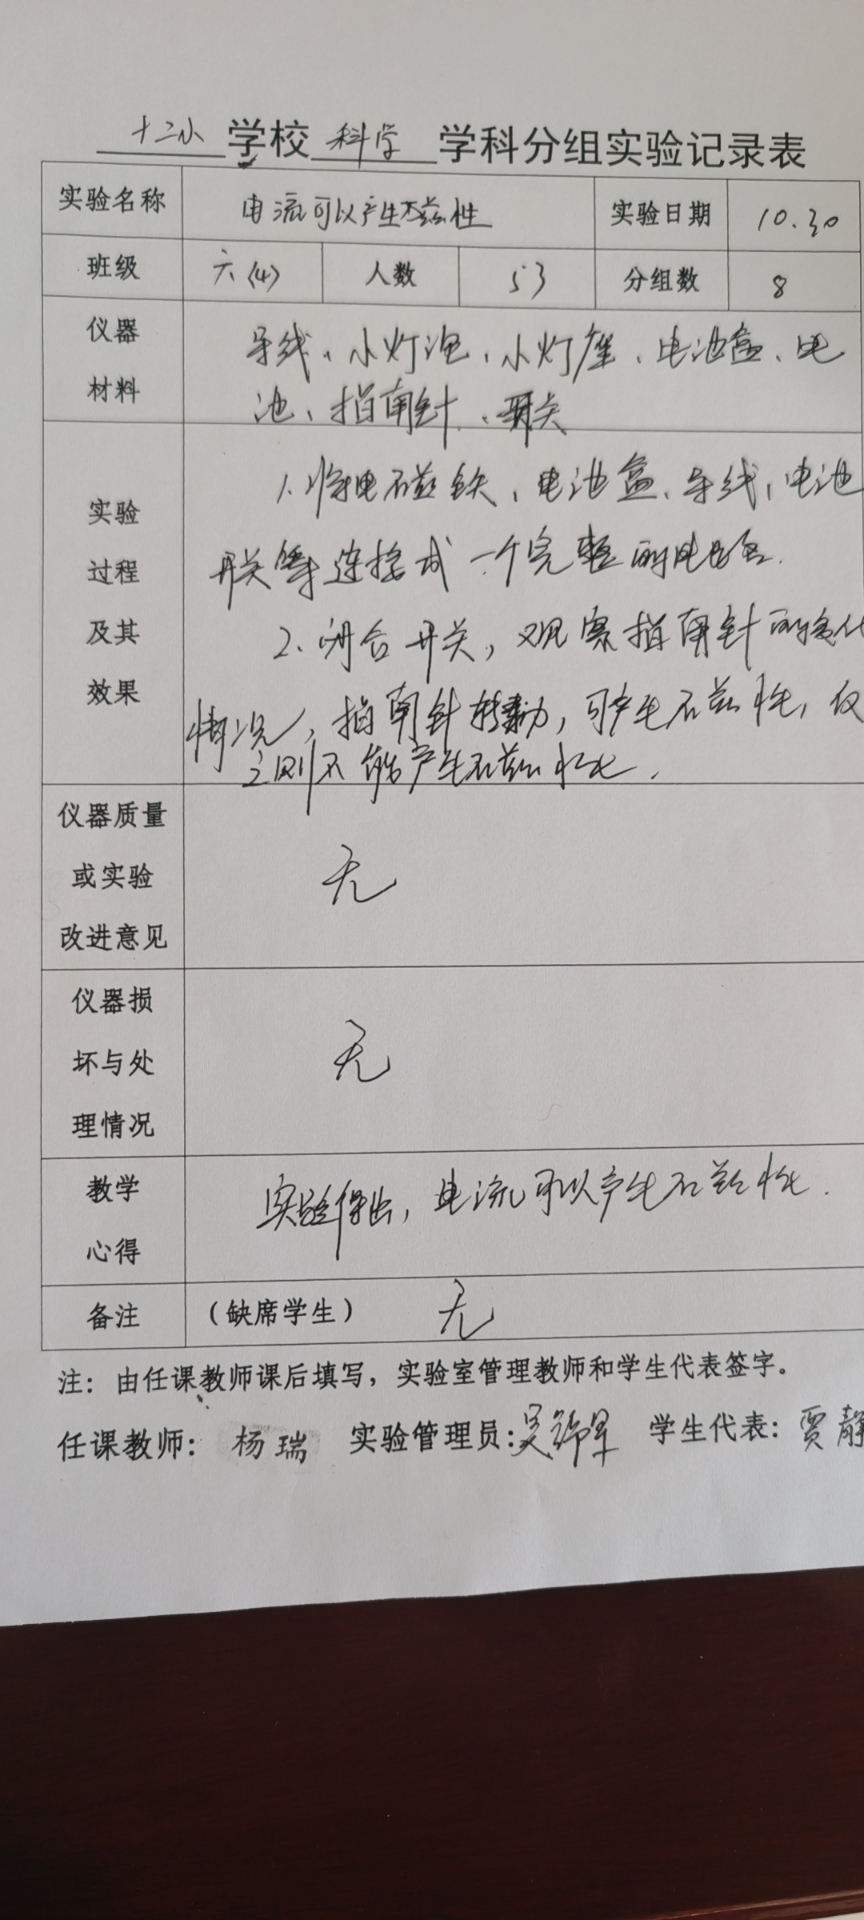 十二小 学校 科学 学科分组实验记录表
实验名称 电流可以产生磁性 实验日期 10.30
班级 六(4) 人数 53 分组数 8
仪器 导线、小灯泡、小灯座、电池盒、电
材料 池、指南针、开关
1.将电磁铁、电池盒、导线、电池
实验
过程 开关等连接成一个完整的电路.
及其 2.闭合开关,观察指南针的变化
效果 情况,指南针转动,可产生磁性,反
之则不能产生磁性.
仪器质量
或实验 无
改进意见
仪器损
坏与处 无
理情况
教学 实验得出,电流可以产生磁性.
心得
备注 (缺席学生) 无
注:由任课教师课后填写,实验室管理教师和学生代表签字。
任课教师: 杨瑞 实验管理员: 学生代表: 贾静